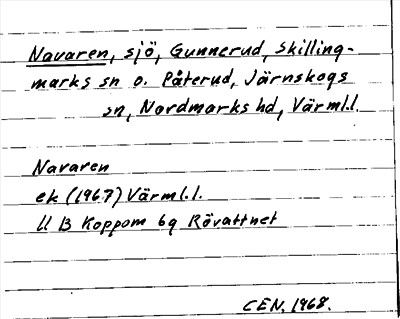 Navaren, sjö, Gunnerud, Skilling-
marks sn o. Påterud, Järnskogs
sn, Nordmarks hd, Värml.l.
Navaren
ek (1967) Värml.l.
11 B Koppom 6g Rövattnet
CEN, 1968.